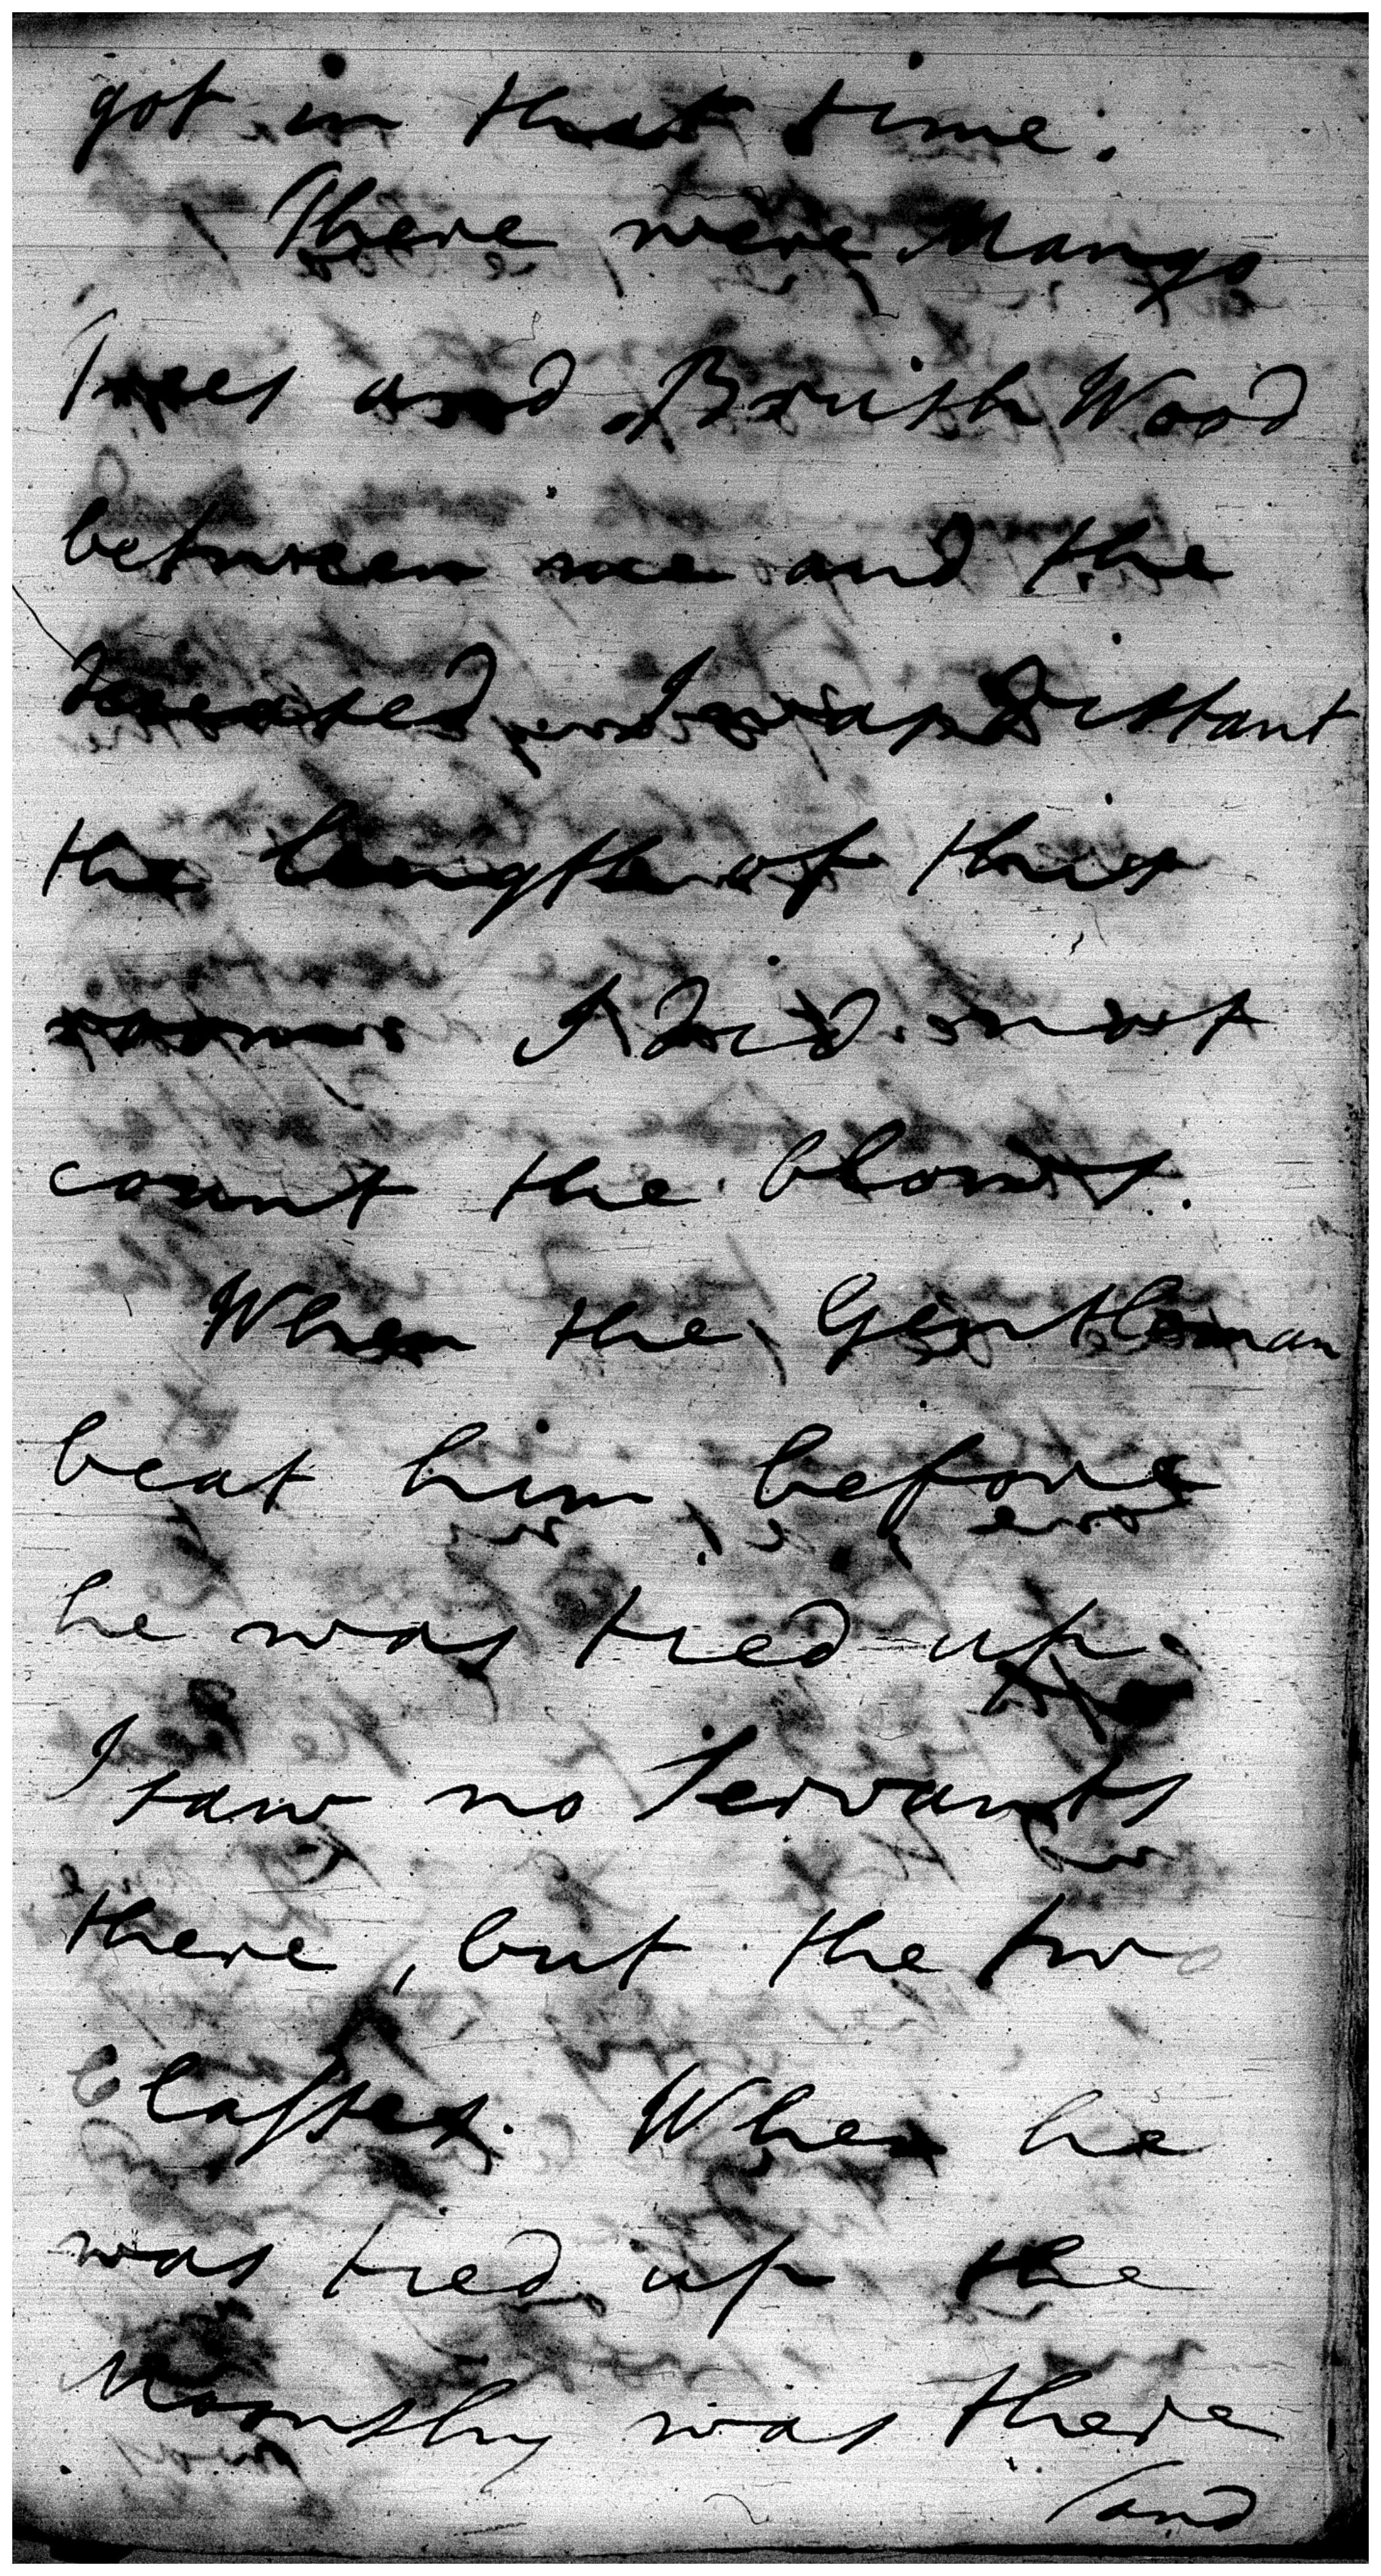 got in that time.
There were Mango
Trees and Brush Wood
between me and the
Deceased, I was distant
the length of this
room I did not
count the blows.
When the Gentleman
beat him before
he was tied up
I saw no Servants
there, but the two
Classes. When he
was tied up the
Moonshy was there
and